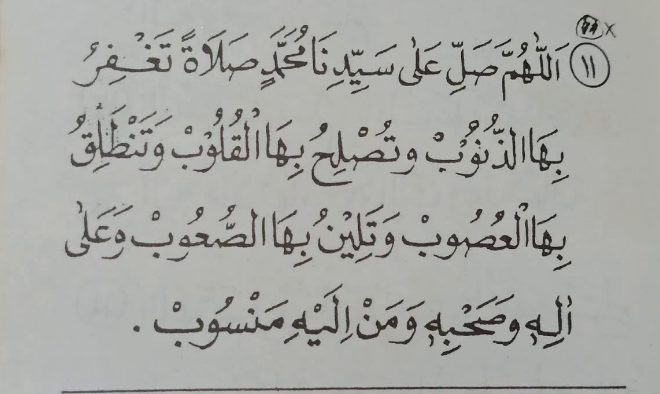 ١١ x
١١ اَللّٰهُمَّ صَلِّ عَلٰى سَيِّدِنَا مُحَمَّدٍ صَلَاةً تَغْفِرُ
بِهَا الذُّنُوْبْ وتُصْلِحُ بِهَا الْقُلُوْبْ وَتَنْطَلِقُ
بِهَا الْعُصُوبْ وَتَلِيْنُ بِهَا الصُّعُوبْ وَعَلٰى
اٰلِهٖ وصَحْبِهٖ وَمَنْ اِلَيْهِ مَنْسُوبْ .